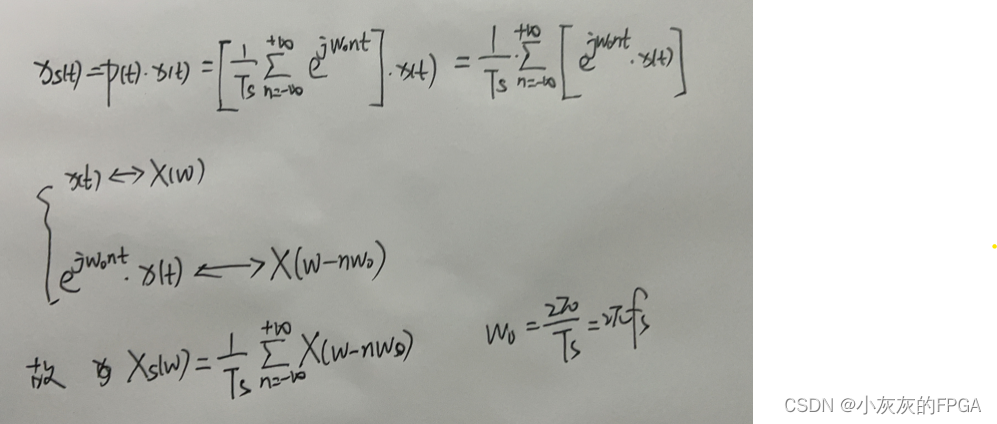 xs(t)=p(t)·x(t)=[1/Ts Σ_{n=-∞}^{+∞} e^{jw₀nt}]·x(t) = 1/Ts·Σ_{n=-∞}^{+∞}[e^{jw₀nt}·x(t)]
{ x(t) ↔ X(w)
e^{jw₀nt}·x(t) ⟷ X(w-nw₀)
故 Xs(w)=1/Ts Σ_{n=-∞}^{+∞} X(w-nw₀) w₀=2π/Ts=2πfs
CSDN @小灰灰的FPGA